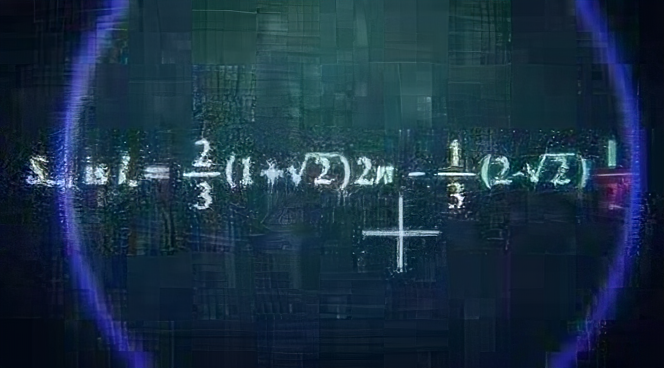 = \frac{2}{3}(1+\sqrt{2})2n - \frac{1}{3}(2-\sqrt{2})